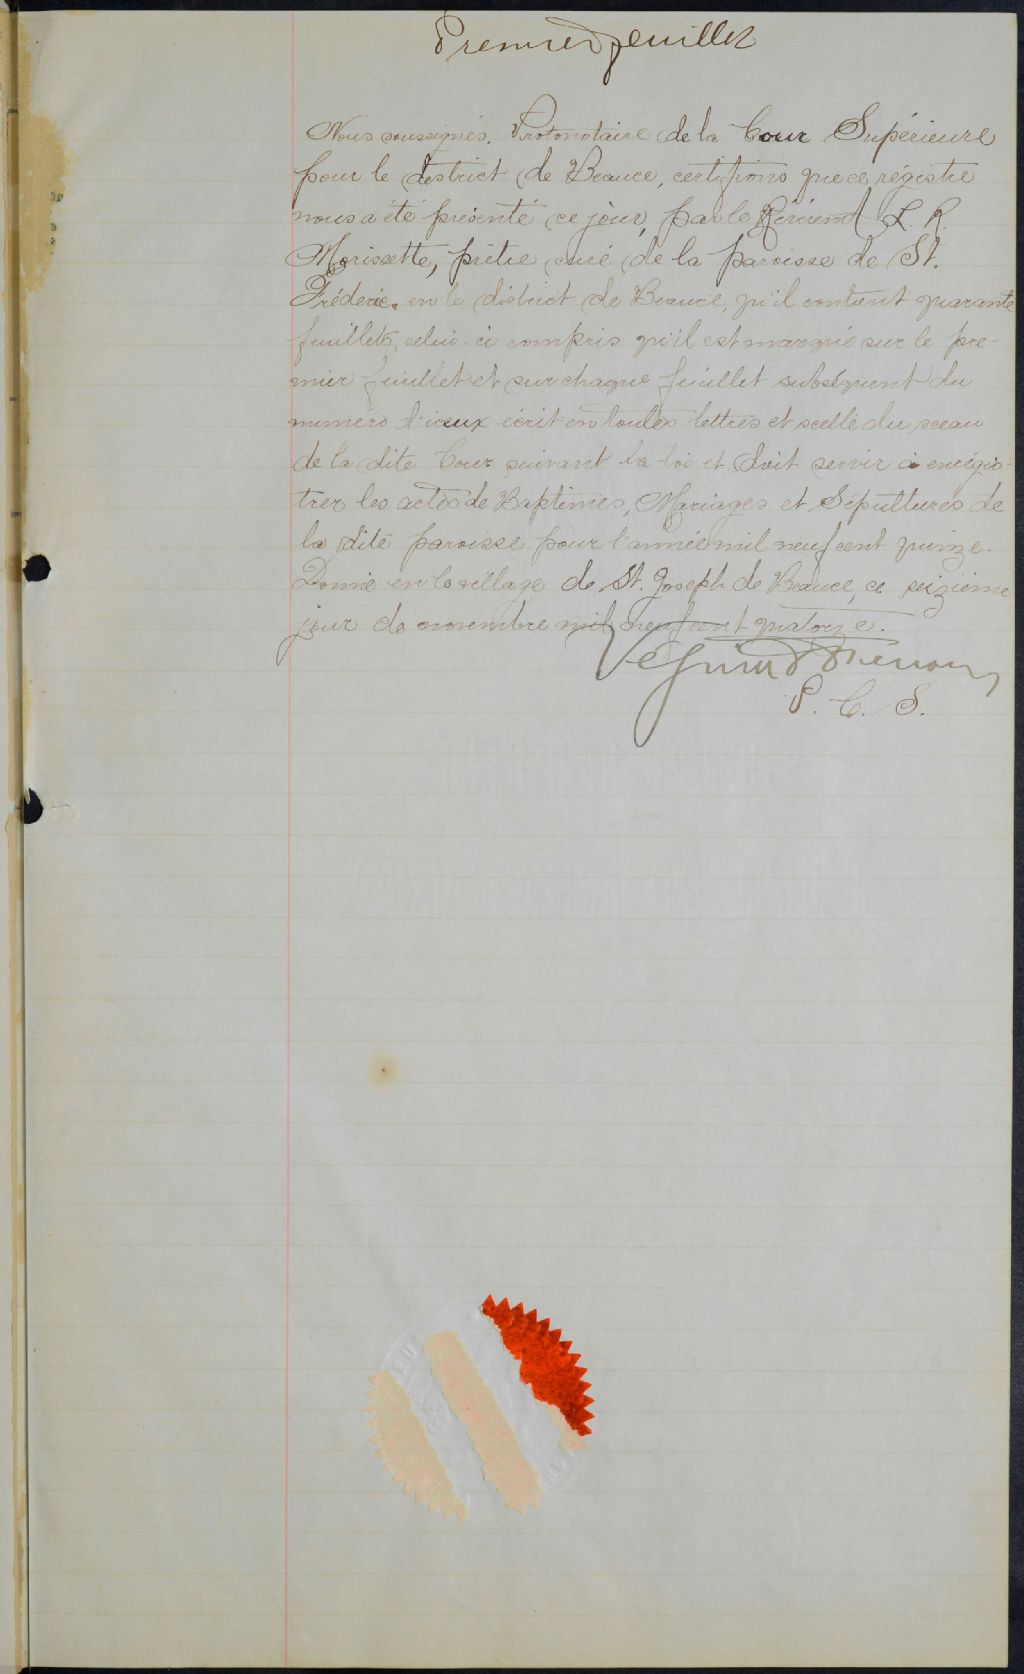 Premier feuillet
Nous soussignés, Protonotaire de la Cour Supérieure
pour le district de Beauce, certifions que ce régistre
nous a été présenté ce jour, par le Révérend L. R.
Morissette, prêtre curé de la paroisse de St.
Fréderic, en le district de Beauce, qu'il contient quarante
feuillets, celui-ci compris qu'il est marqué sur le pre-
mier feuillet et sur chaque feuillet subséquent du
numéro d'iceux écrit en toutes lettres et scellé du sceau
de la dite Cour suivant la loi et doit servir à enrégis-
trer les actes de Baptêmes, Mariages et Sépultures de
la dite paroisse pour l'année mil neuf cent quinze.
Donné en le village de St. Joseph de Beauce, ce seizième
jour de novembre mil neuf cent quatorze.
P. C. S.